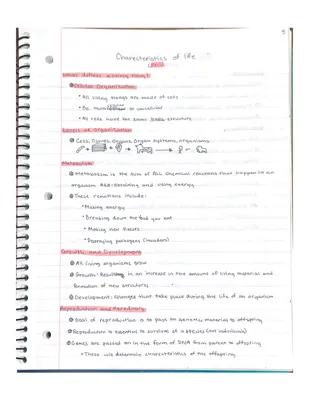 5
Characteristics of life
What defines a living thing?
Cellular Organization
• All living things are made of cells
• Be multicellular or unicellular
• All cells have the same basic structure
Levels of organization
Cells, tissues, organs, organ systems, organisms
Metabolism
Metabolism is the sum of all chemical reactions that happen in an
organism AKA-obtaining and using energy
These reactions include:
• Making energy
• Breaking down the food you eat
• Making new tissues
• Destroying pathogens (invaders)
Growth and Development
All living organisms grow
Growth: Results in an increase in the amount of living material and
formation of new structures
Development: Changes that take place during the life of an organism
Reproduction and Heredity
Goal of reproduction is to pass on genetic materials to offspring
Reproduction is essential to survival of a species (not individuals)
Genes are passed on in the form of DNA from parent to offspring
• These will determine characteristics of the offspring